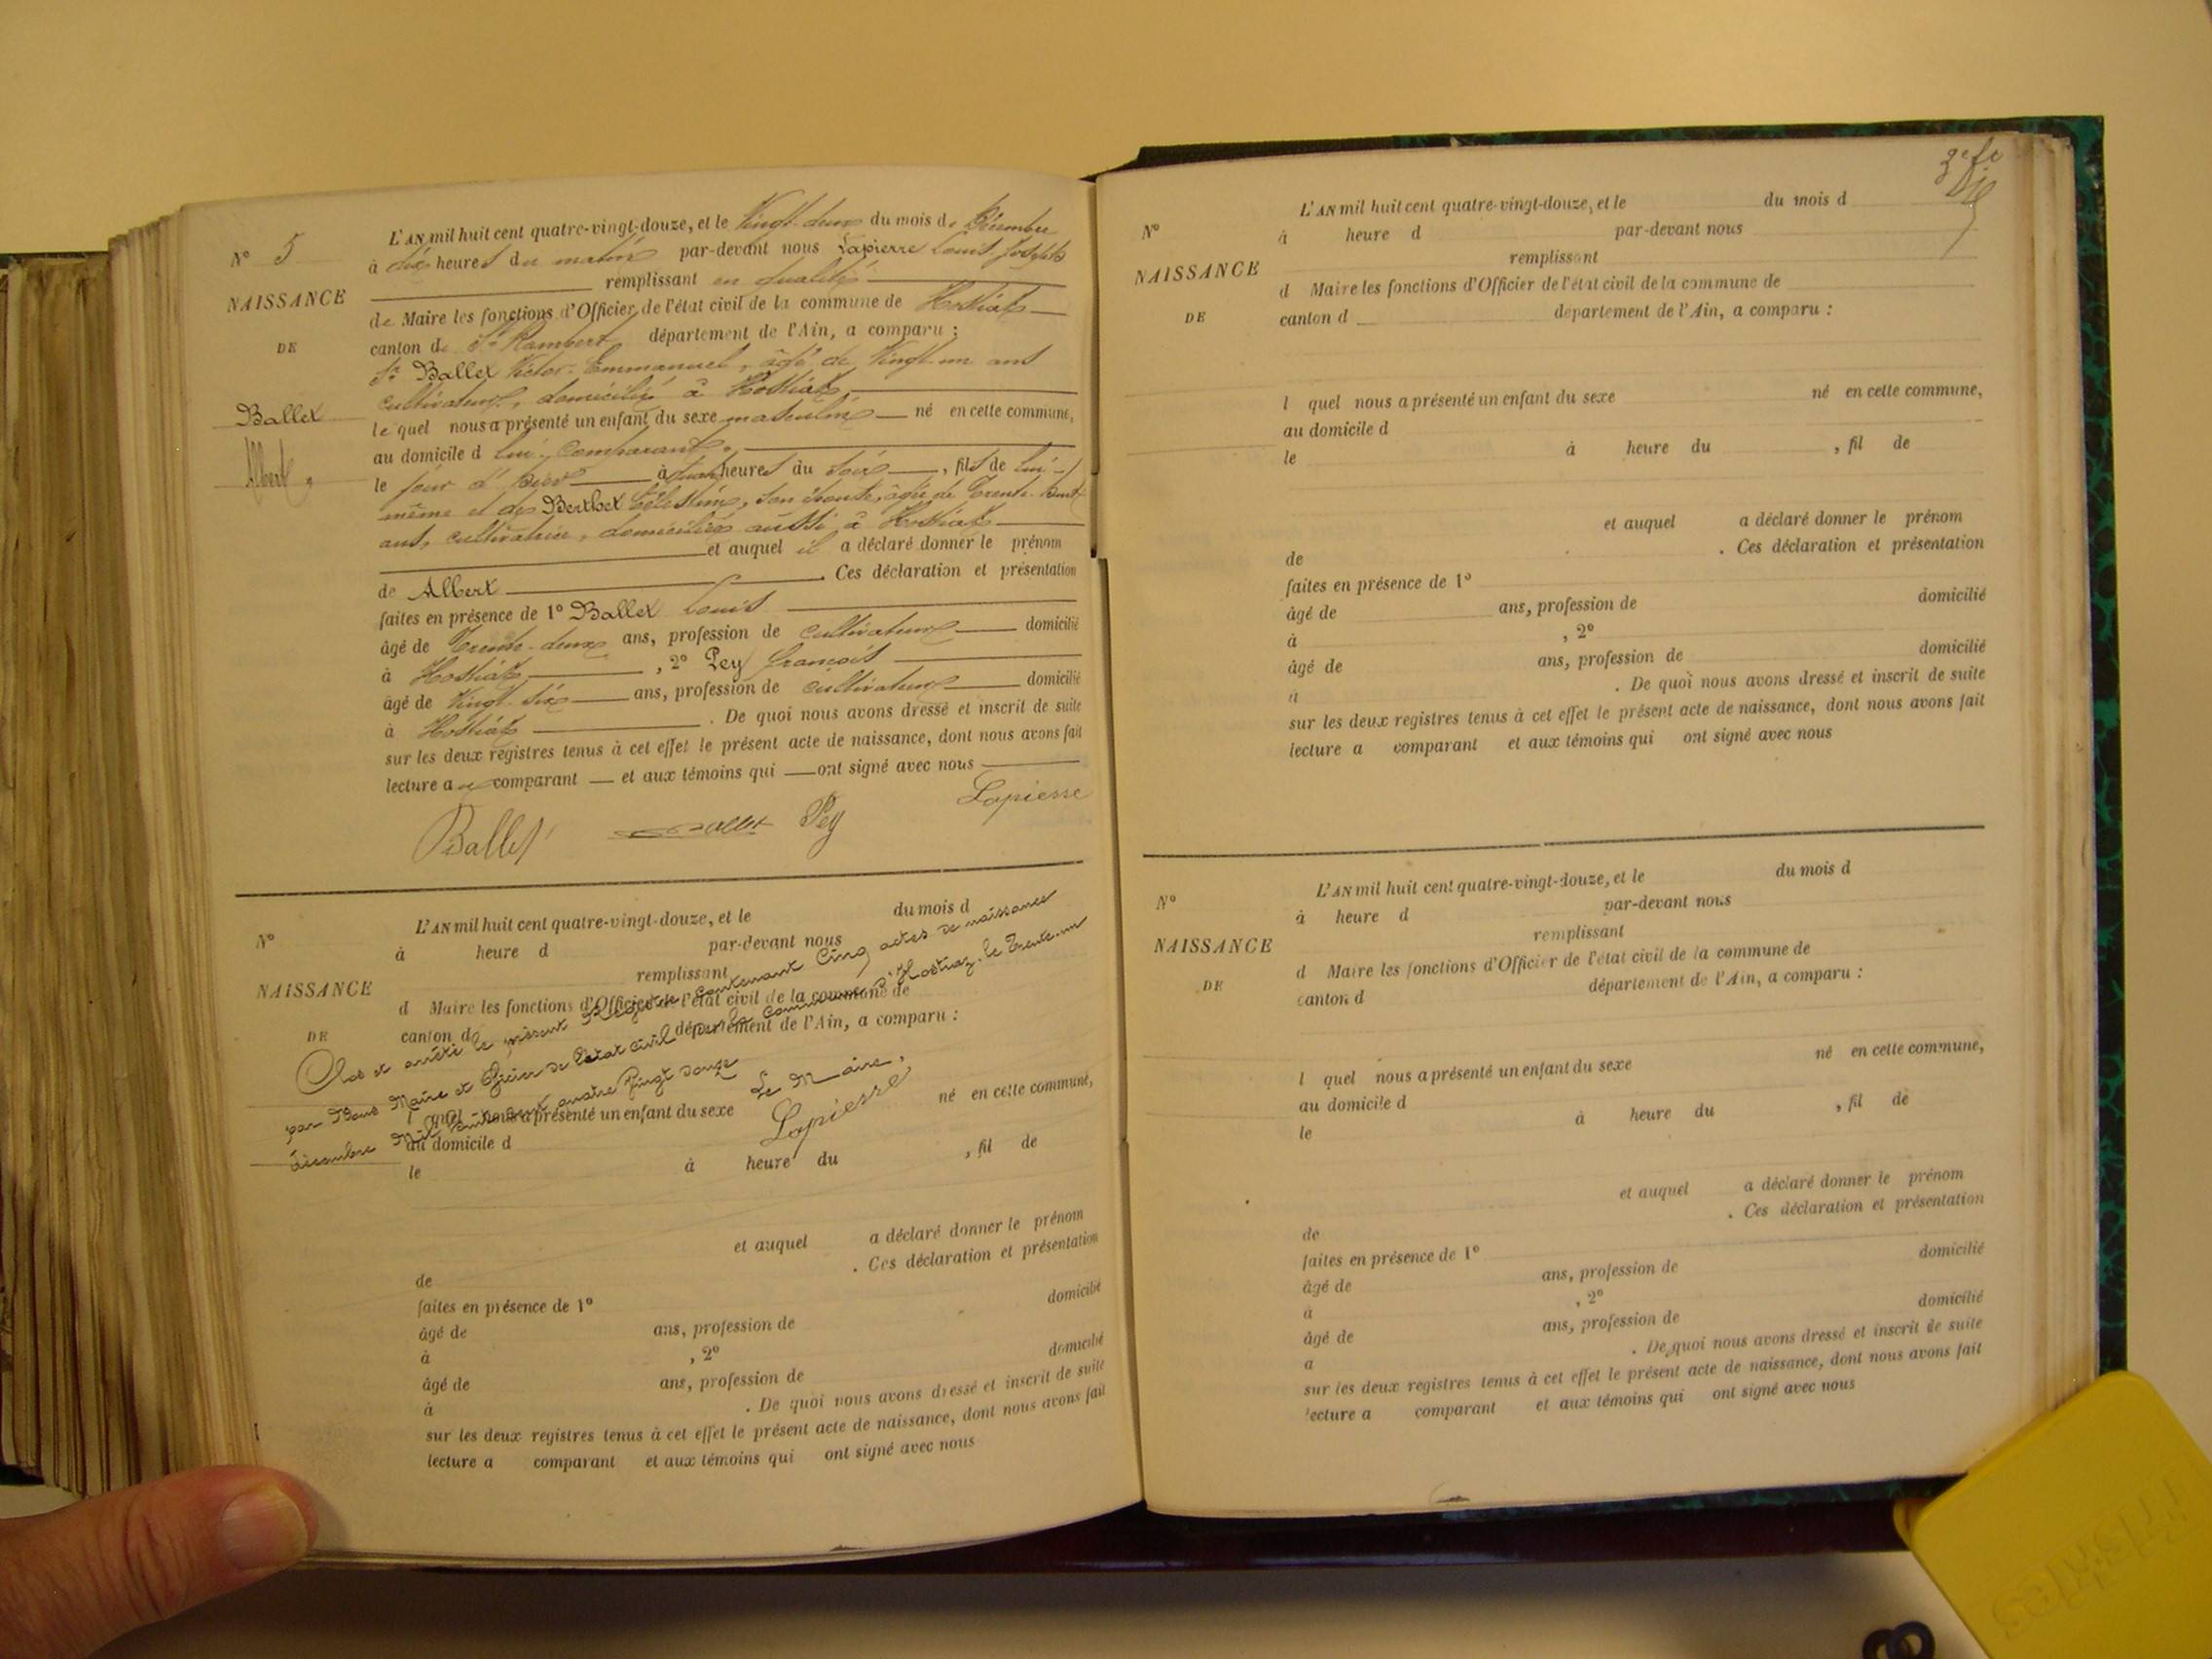 N° 5
NAISSANCE
DE
Ballet
Albert
L'AN mil huit cent quatre-vingt-douze, et le Vingt deux du mois de Décembre
à dix heures du matin par-devant nous Lapierre Louis Joseph
remplissant en qualité
de Maire les fonctions d'Officier de l'état civil de la commune de Hostiaz
canton de St Rambert département de l'Ain, a comparu :
Sr Ballet Victor-Emmanuel, âgé de Vingt un ans
cultivateur, domicilié à Hostiaz,
le quel nous a présenté un enfant du sexe masculin né en cette commune,
au domicile d lui comparant,
le jour d'hier à heures du soir, fils de lui-
même et de Berthet Célestine, son épouse, âgée de Trente-huit
ans, cultivatrice, domiciliée aussi à Hostiaz
et auquel il a déclaré donner le prénom
de Albert . Ces déclaration et présentation
faites en présence de 1° Ballet Louis
âgé de Trente-deux ans, profession de cultivateur domicilié
à Hostiaz , 2° Pey françois
âgé de Vingt six ans, profession de cultivateur domicilié
à Hostiaz . De quoi nous avons dressé et inscrit de suite
sur les deux registres tenus à cet effet le présent acte de naissance, dont nous avons fait
lecture au comparant et aux témoins qui ont signé avec nous
Ballet Ballet Pey Lapierre
N°
NAISSANCE
DE
L'AN mil huit cent quatre-vingt-douze, et le du mois d
à heure d par-devant nous
remplissant
d Maire les fonctions d'Officier de l'état civil de la commune de
canton d département de l'Ain, a comparu :
l quel nous a présenté un enfant du sexe né en cette commune,
au domicile d
le à heure du , fil de
et auquel a déclaré donner le prénom
de . Ces déclaration et présentation
faites en présence de 1°
âgé de ans, profession de domicilié
à , 2°
âgé de ans, profession de domicilié
à . De quoi nous avons dressé et inscrit de suite
sur les deux registres tenus à cet effet le présent acte de naissance, dont nous avons fait
lecture a comparant et aux témoins qui ont signé avec nous
Clos et arrêté le présent Registre contenant Cinq actes de naissance
par Nous Maire et Officier de l'état civil de la Commune d'Hostiaz, le Trente-un
décembre Mil huit cent quatre Vingt douze
Le Maire,
Lapierre
N°
NAISSANCE
DE
L'AN mil huit cent quatre-vingt-douze, et le du mois d
à heure d par-devant nous
remplissant
d Maire les fonctions d'Officier de l'état civil de la commune de
canton d département de l'Ain, a comparu :
l quel nous a présenté un enfant du sexe né en cette commune,
au domicile d
le à heure du , fil de
et auquel a déclaré donner le prénom
de . Ces déclaration et présentation
faites en présence de 1°
âgé de ans, profession de domicilié
à , 2°
âgé de ans, profession de domicilié
à . De quoi nous avons dressé et inscrit de suite
sur les deux registres tenus à cet effet le présent acte de naissance, dont nous avons fait
lecture a comparant et aux témoins qui ont signé avec nous
N°
NAISSANCE
DE
L'AN mil huit cent quatre-vingt-douze, et le du mois d
à heure d par-devant nous
remplissant
d Maire les fonctions d'Officier de l'état civil de la commune de
canton d département de l'Ain, a comparu :
l quel nous a présenté un enfant du sexe né en cette commune,
au domicile d
le à heure du , fil de
et auquel a déclaré donner le prénom
de . Ces déclaration et présentation
faites en présence de 1°
âgé de ans, profession de domicilié
à , 2°
âgé de ans, profession de domicilié
a . De quoi nous avons dressé et inscrit de suite
sur les deux registres tenus à cet effet le présent acte de naissance, dont nous avons fait
lecture a comparant et aux témoins qui ont signé avec nous